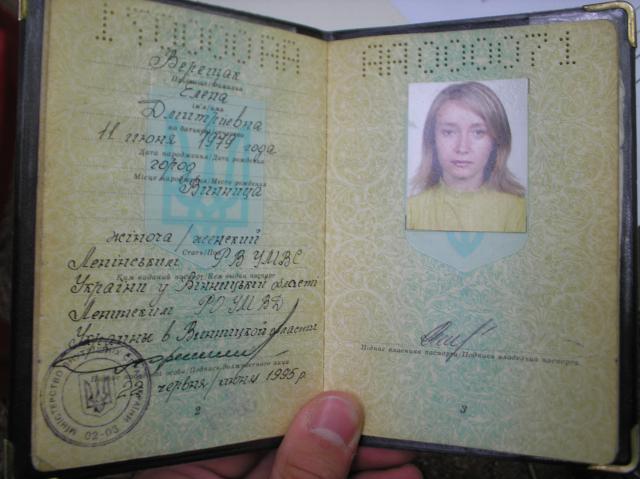 Верещак
Прізвище/Фамилия
Елена
Ім'я/имя
Дмитриевна
по батькові/отчество
11 июня 1979 года
Дата народження/Дата рождения
город
Місце народження/Место рождения
Винница
жіноча/женский
Стать/Пол
Ленінським РВ УМВС
Ким виданий паспорт/Кем выдан паспорт
України у Вінницькій області
Ленинским РО УМВД
Украины в Винницкой области
особи/Подпись должностного лица
червня/июня 1995 р
МІНІСТЕРСТВО УКРАЇНИ
02-03
2
АА 000071
Підпис власника паспорта/Подпись владельца паспорта
3